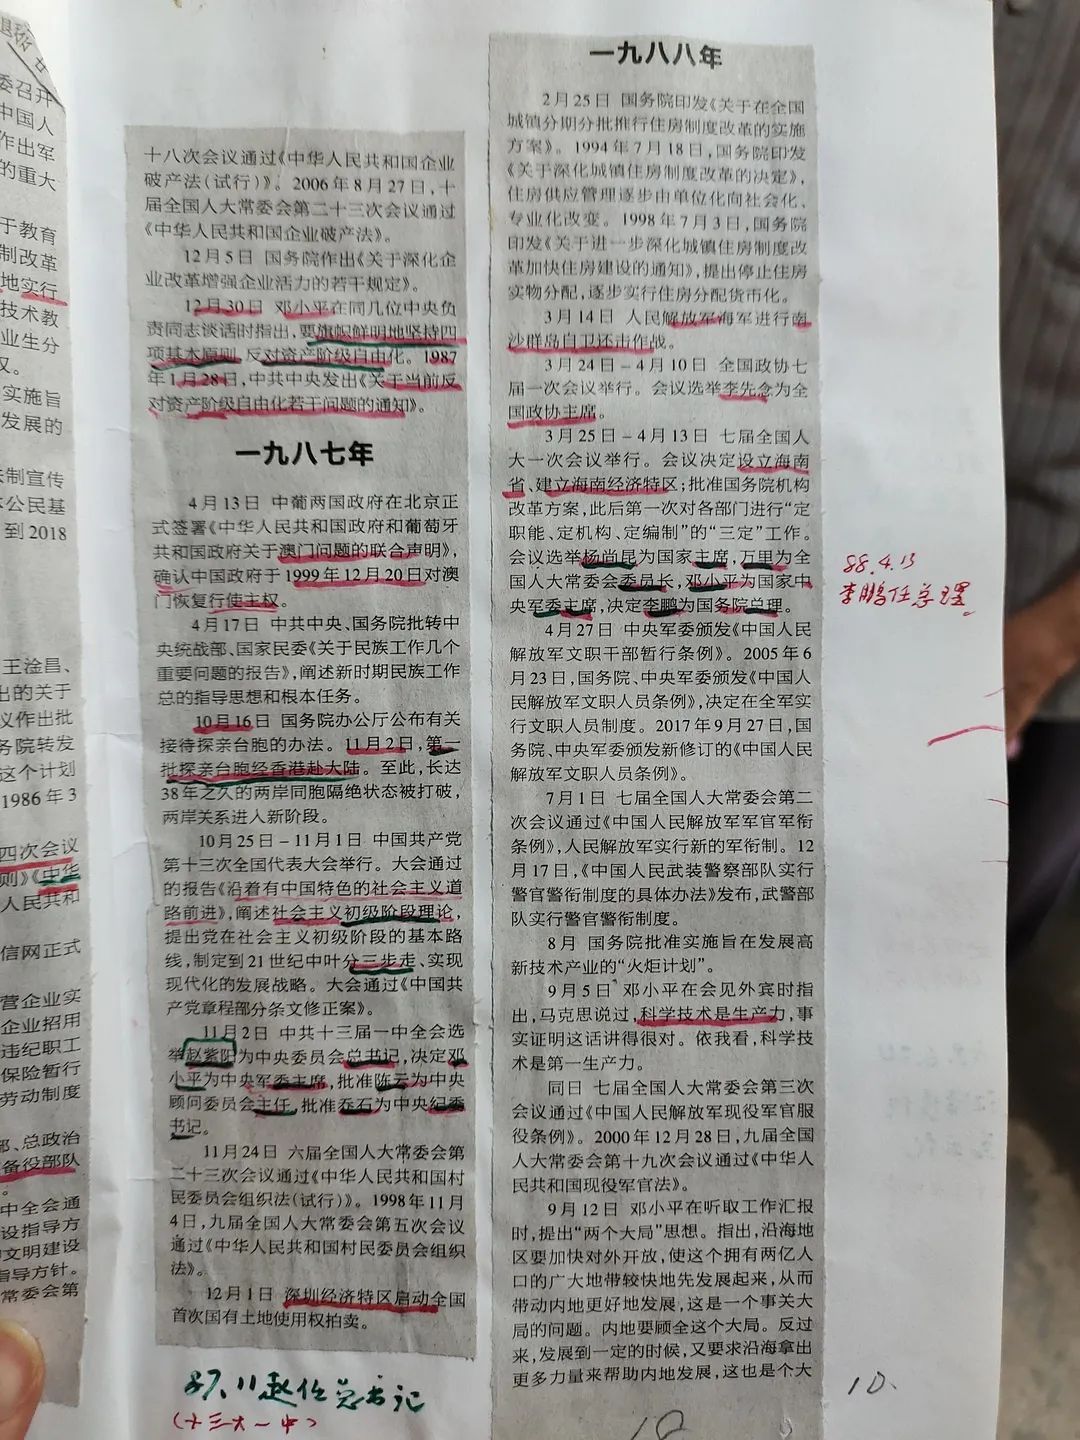 委召开
中国人
作出军
的重大
于教育
制改革
地实行
技术教
业生分
权。
实施旨
发展的
法制宣传
公民基
到2018
王淦昌、
出的关于
议作出批
务院转发
这个计划
1986年3
四次会议
则》《中华
人民共和
信网正式
营企业实
企业招用
违纪职工
保险暂行
劳动制度
部、总政治
备役部队
中全会通
设指导方
文明建设
指导方针。
常委会第
十八次会议通过《中华人民共和国企业
破产法(试行)》。2006年8月27日,十
届全国人大常委会第二十三次会议通过
《中华人民共和国企业破产法》。
12月5日 国务院作出《关于深化企
业改革增强企业活力的若干规定》。
12月30日 邓小平在同几位中央负
责同志谈话时指出,要旗帜鲜明地坚持四
项基本原则,反对资产阶级自由化。1987
年1月28日,中共中央发出《关于当前反
对资产阶级自由化若干问题的通知》。
一九八七年
4月13日 中葡两国政府在北京正
式签署《中华人民共和国政府和葡萄牙
共和国政府关于澳门问题的联合声明》,
确认中国政府于1999年12月20日对澳
门恢复行使主权。
4月17日 中共中央、国务院批转中
央统战部、国家民委《关于民族工作几个
重要问题的报告》,阐述新时期民族工作
总的指导思想和根本任务。
10月16日 国务院办公厅公布有关
接待探亲台胞的办法。11月2日,第一
批探亲台胞经香港赴大陆。至此,长达
38年之久的两岸同胞隔绝状态被打破,
两岸关系进入新阶段。
10月25日－11月1日 中国共产党
第十三次全国代表大会举行。大会通过
的报告《沿着有中国特色的社会主义道
路前进》,阐述社会主义初级阶段理论,
提出党在社会主义初级阶段的基本路
线,制定到21世纪中叶分三步走、实现
现代化的发展战略。大会通过《中国共
产党章程部分条文修正案》。
11月2日 中共十三届一中全会选
举赵紫阳为中央委员会总书记,决定邓
小平为中央军委主席,批准陈云为中央
顾问委员会主任,批准乔石为中央纪委
书记。
11月24日 六届全国人大常委会第
二十三次会议通过《中华人民共和国村
民委员会组织法(试行)》。1998年11月
4日,九届全国人大常委会第五次会议
通过《中华人民共和国村民委员会组织
法》。
12月1日 深圳经济特区启动全国
首次国有土地使用权拍卖。
87.11赵任总书记
(十三大一中)
一九八八年
2月25日 国务院印发《关于在全国
城镇分期分批推行住房制度改革的实施
方案》。1994年7月18日,国务院印发
《关于深化城镇住房制度改革的决定》,
住房供应管理逐步由单位化向社会化、
专业化改变。1998年7月3日,国务院
印发《关于进一步深化城镇住房制度改
革加快住房建设的通知》,提出停止住房
实物分配,逐步实行住房分配货币化。
3月14日 人民解放军海军进行南
沙群岛自卫还击作战。
3月24日－4月10日 全国政协七
届一次会议举行。会议选举李先念为全
国政协主席。
3月25日－4月13日 七届全国人
大一次会议举行。会议决定设立海南
省、建立海南经济特区;批准国务院机构
改革方案,此后第一次对各部门进行“定
职能、定机构、定编制”的“三定”工作。
会议选举杨尚昆为国家主席,万里为全
国人大常委会委员长,邓小平为国家中
央军委主席,决定李鹏为国务院总理。
4月27日 中央军委颁发《中国人民
解放军文职干部暂行条例》。2005年6
月23日,国务院、中央军委颁发《中国人
民解放军文职人员条例》,决定在全军实
行文职人员制度。2017年9月27日,国
务院、中央军委颁发新修订的《中国人民
解放军文职人员条例》。
7月1日 七届全国人大常委会第二
次会议通过《中国人民解放军军官军衔
条例》,人民解放军实行新的军衔制。12
月17日,《中国人民武装警察部队实行
警官警衔制度的具体办法》发布,武警部
队实行警官警衔制度。
8月 国务院批准实施旨在发展高
新技术产业的“火炬计划”。
9月5日 邓小平在会见外宾时指
出,马克思说过,科学技术是生产力,事
实证明这话讲得很对。依我看,科学技
术是第一生产力。
同日 七届全国人大常委会第三次
会议通过《中国人民解放军现役军官服
役条例》。2000年12月28日,九届全国
人大常委会第十九次会议通过《中华人
民共和国现役军官法》。
9月12日 邓小平在听取工作汇报
时,提出“两个大局”思想。指出,沿海地
区要加快对外开放,使这个拥有两亿人
口的广大地带较快地先发展起来,从而
带动内地更好地发展,这是一个事关大
局的问题。内地要顾全这个大局。反过
来,发展到一定的时候,又要求沿海拿出
更多力量来帮助内地发展,这也是个大
88.4.13
李鹏任总理
10.